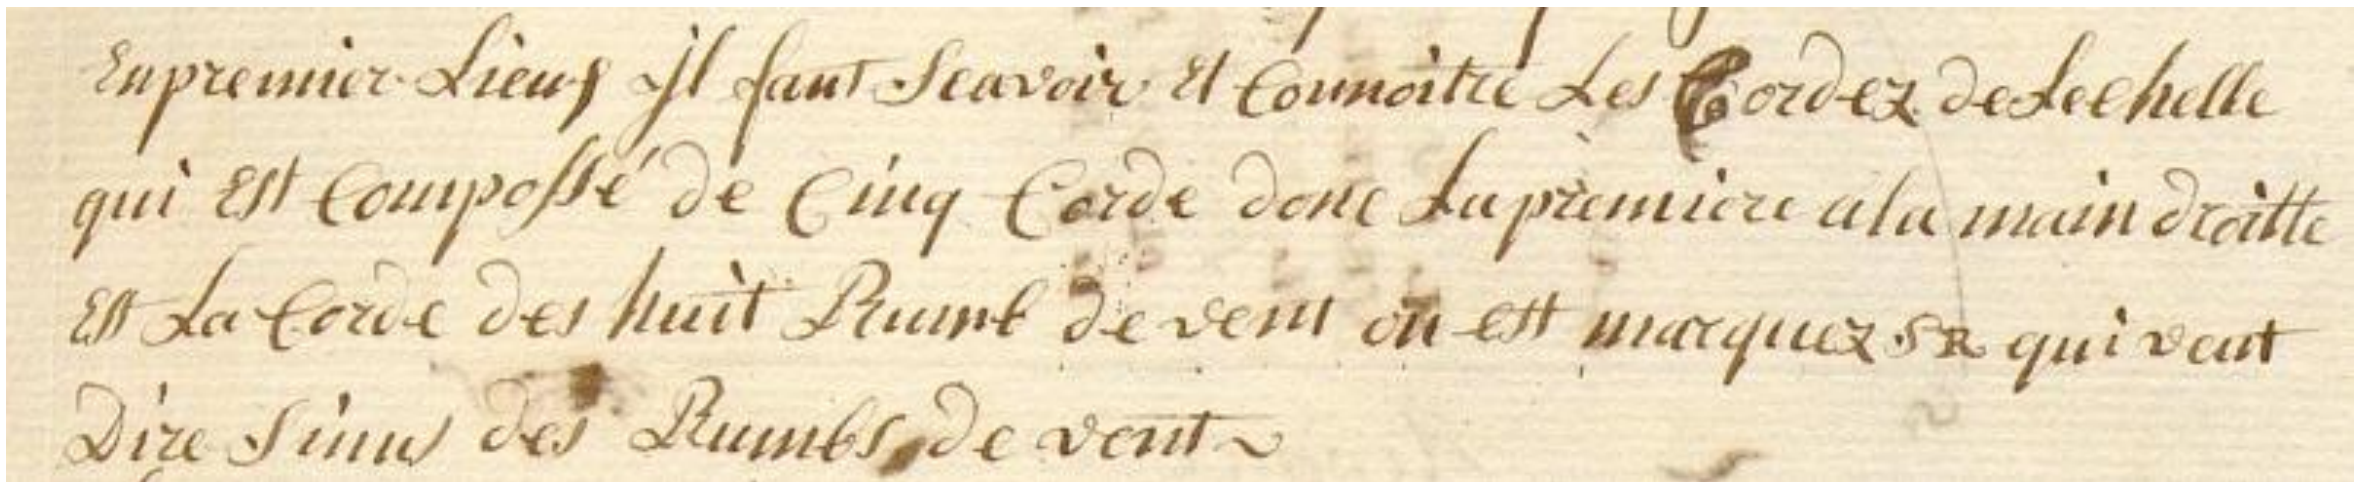 En premier Lieus Jl faut Scavoir Et Connoitre Les Cordez de Lechelle
qui Est Composse de Cinq Corde donc La premiere a la main droitte
Est La Corde des huit Rumb de vent ou est marquez SR qui veut
Dire Sinus des Rumbs de vent